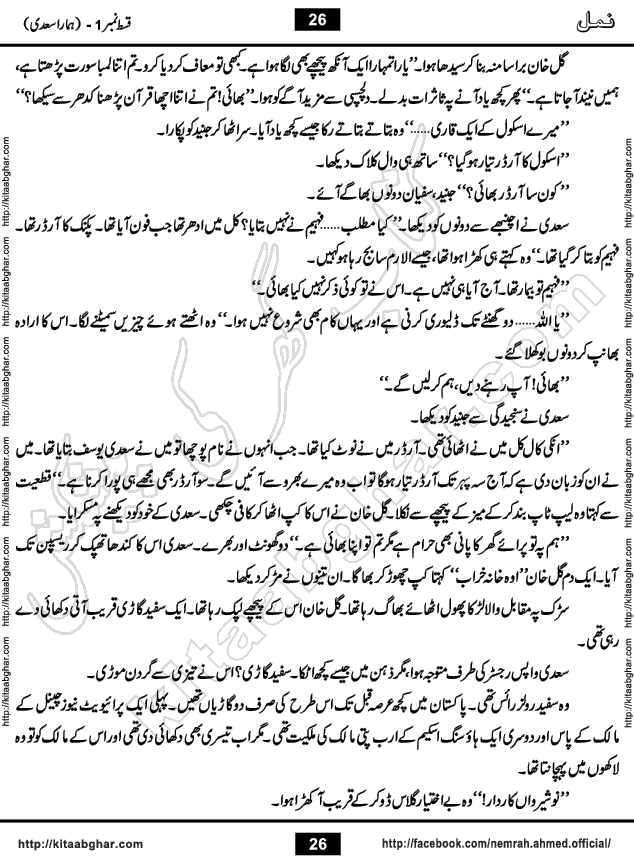 نمل
26
قسط نمبر 1 - (ہمارا سعدی)
گل خان برا سا منہ بنا کر سیدھا ہوا۔ ’’یارا تمہارا ایک آنکھ پیچھے بھی لگا ہوا ہے۔ کبھی تو معاف کر دیا کرو۔ تم اتنا لمبا سورت پڑھتا ہے،
ہمیں نیند آ جاتا ہے۔‘‘ پھر کچھ یاد آنے پہ تاثرات بدلے۔ دلچسپی سے مزید آگے کو ہوا۔ ’’بھائی! تم نے اتنا اچھا قرآن پڑھنا کدھر سے سیکھا؟‘‘
’’میرے اسکول کے ایک قاری......‘‘ وہ بتاتے بتاتے رکا جیسے کچھ یاد آیا۔ سر اٹھا کر جنید کو پکارا۔
’’اسکول کا آرڈر تیار ہو گیا؟‘‘ ساتھ ہی وال کلاک دیکھا۔
’’کون سا آرڈر بھائی؟‘‘ جنید، سفیان دونوں بھاگے آئے۔
سعدی نے اچنبھے سے دونوں کو دیکھا۔ ’’کیا مطلب...... فہیم نے نہیں بتایا؟ کل میں ادھر تھا جب فون آیا تھا۔ پکنک کا آرڈر تھا۔
فہیم کو بتا کر گیا تھا۔‘‘ وہ کہتے ہی کھڑا ہوا تھا، جیسے الارم سا بج رہا ہو کہیں۔
’’فہیم تو بیمار تھا۔ آج آیا ہی نہیں ہے۔ اس نے تو کوئی ذکر نہیں کیا بھائی۔‘‘
’’یا اللہ...... دو گھنٹے تک ڈلیوری کرنی ہے اور یہاں کام بھی شروع نہیں ہوا۔‘‘ وہ اٹھتے ہوئے چیزیں سمیٹنے لگا۔ اس کا ارادہ
بھانپ کر دونوں بوکھلا گئے۔
’’بھائی! آپ رہنے دیں، ہم کر لیں گے۔‘‘
سعدی نے سنجیدگی سے جنید کو دیکھا۔
’’انکی کال کل میں نے اٹھائی تھی۔ آرڈر میں نے نوٹ کیا تھا۔ جب انہوں نے نام پوچھا تو میں نے سعدی یوسف بتایا تھا۔ میں
نے ان کو زبان دی ہے کہ آج سہ پہر تک آرڈر تیار ہو گا تو اب وہ میرے بھروسے آئیں گے۔ سو آرڈر بھی مجھے ہی پورا کرنا ہے۔‘‘ قطعیت
سے کہتا وہ لیپ ٹاپ بند کر کے میز کے پیچھے سے نکلا۔ گل خان نے اس کا کپ اٹھا کر کافی چکھی۔ سعدی کے خود کو دیکھنے پہ مسکرایا۔
’’ہم پہ تو پرائے گھر کا پانی بھی حرام ہے مگر تم تو اپنا بھائی ہے۔‘‘ دو گھونٹ اور بھرے۔ سعدی اس کا کندھا تھپک کر ریسپشن تک
آیا۔ ایک دم گل خان ’’اوہ خانہ خراب‘‘ کہتا کپ چھوڑ کر بھاگا۔ ان تینوں نے مڑ کر دیکھا۔
سڑک پہ مقابل والا لڑکا پھول اٹھائے بھاگ رہا تھا۔ گل خان اس کے پیچھے لپک رہا تھا۔ ایک سفید گاڑی قریب آتی دکھائی دے
رہی تھی۔
سعدی واپس رجسٹر کی طرف متوجہ ہوا، مگر ذہن میں جیسے کچھ اٹکا۔ سفید گاڑی؟ اس نے تیزی سے گردن موڑی۔
وہ سفید رولز رائس تھی۔ پاکستان میں کچھ عرصہ قبل تک اس طرح کی صرف دو گاڑیاں تھیں۔ پہلی ایک پرائیویٹ نیوز چینل کے
مالک کے پاس اور دوسری ایک ہاؤسنگ اسکیم کے ارب پتی مالک کی ملکیت تھی۔ مگر اب تیسری بھی دکھائی دی تھی اور اس کے مالک کو تو وہ
لاکھوں میں پہچانتا تھا۔
’’نوشیرواں کاردار!‘‘ وہ بے اختیار گلاس ڈور کے قریب آ کھڑا ہوا۔
http://kitaabghar.com
26
http://facebook.com/nemrah.ahmed.official/
http://kitaabghar.com http://kitaabghar.com http://kitaabghar.com http://kitaabghar.com http://kitaabghar.com http://kitaabghar.com
http://kitaabghar.com http://kitaabghar.com http://kitaabghar.com http://kitaabghar.com http://kitaabghar.com http://kitaabghar.com
کتاب گھر کی پیشکش
kitaabghar.com